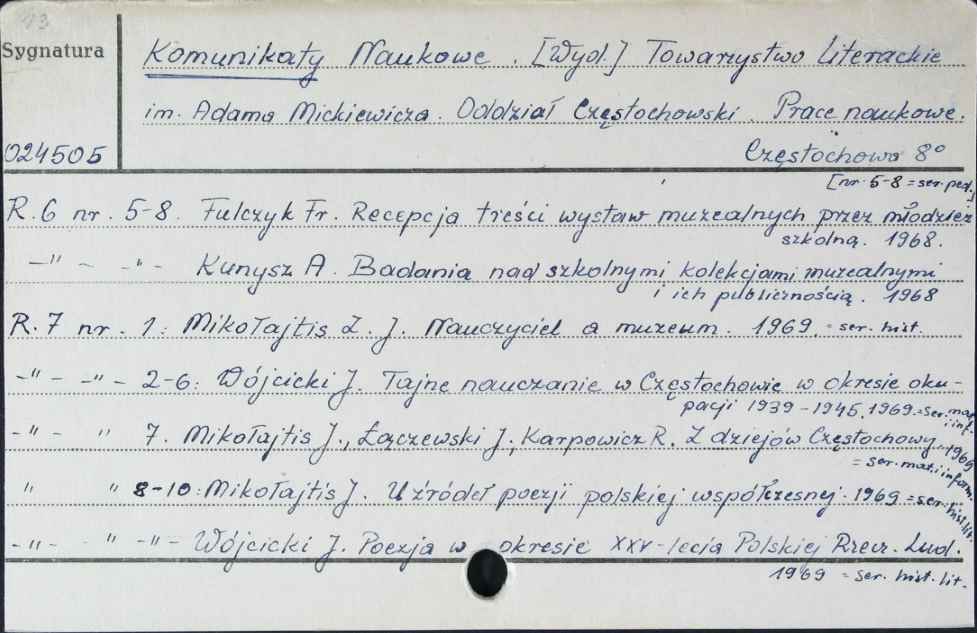 13
Sygnatura
Komunikaty Naukowe. [Wyd.] Towarzystwo Literackie
im. Adama Mickiewicza. Oddział Częstochowski. Prace naukowe.
024505
Częstochowa 8°
[nr. 5-8 = ser. ped.]
R. 6 nr. 5-8. Fulczyk Fr. Recepcja treści wystaw muzealnych przez młodzież
szkolną. 1968.
-"- -"- Kunysz A. Badania nad szkolnymi kolekcjami muzealnymi
i ich publicznością. 1968
R. 7 nr. 1: Mikołajtis Z. J. Nauczyciel a muzeum. 1969. = ser. hist.
-"- -"- 2-6: Wójcicki J. Tajne nauczanie w Częstochowie w okresie oku-
pacji 1939-1945. 1969. = ser. mat. i inf.
-"- " 7. Mikołajtis J., Łączewski J., Karpowicz R. Z dziejów Częstochowy. 1969
= ser. mat. i inform.
" " 8-10: Mikołajtis J. U źródeł poezji polskiej współczesnej. 1969 = ser. hist. lit.
-"- -"- -"- Wójcicki J. Poezja w okresie XXV-lecia Polskiej Rzecz. Lud.
1969 = ser. hist. lit.